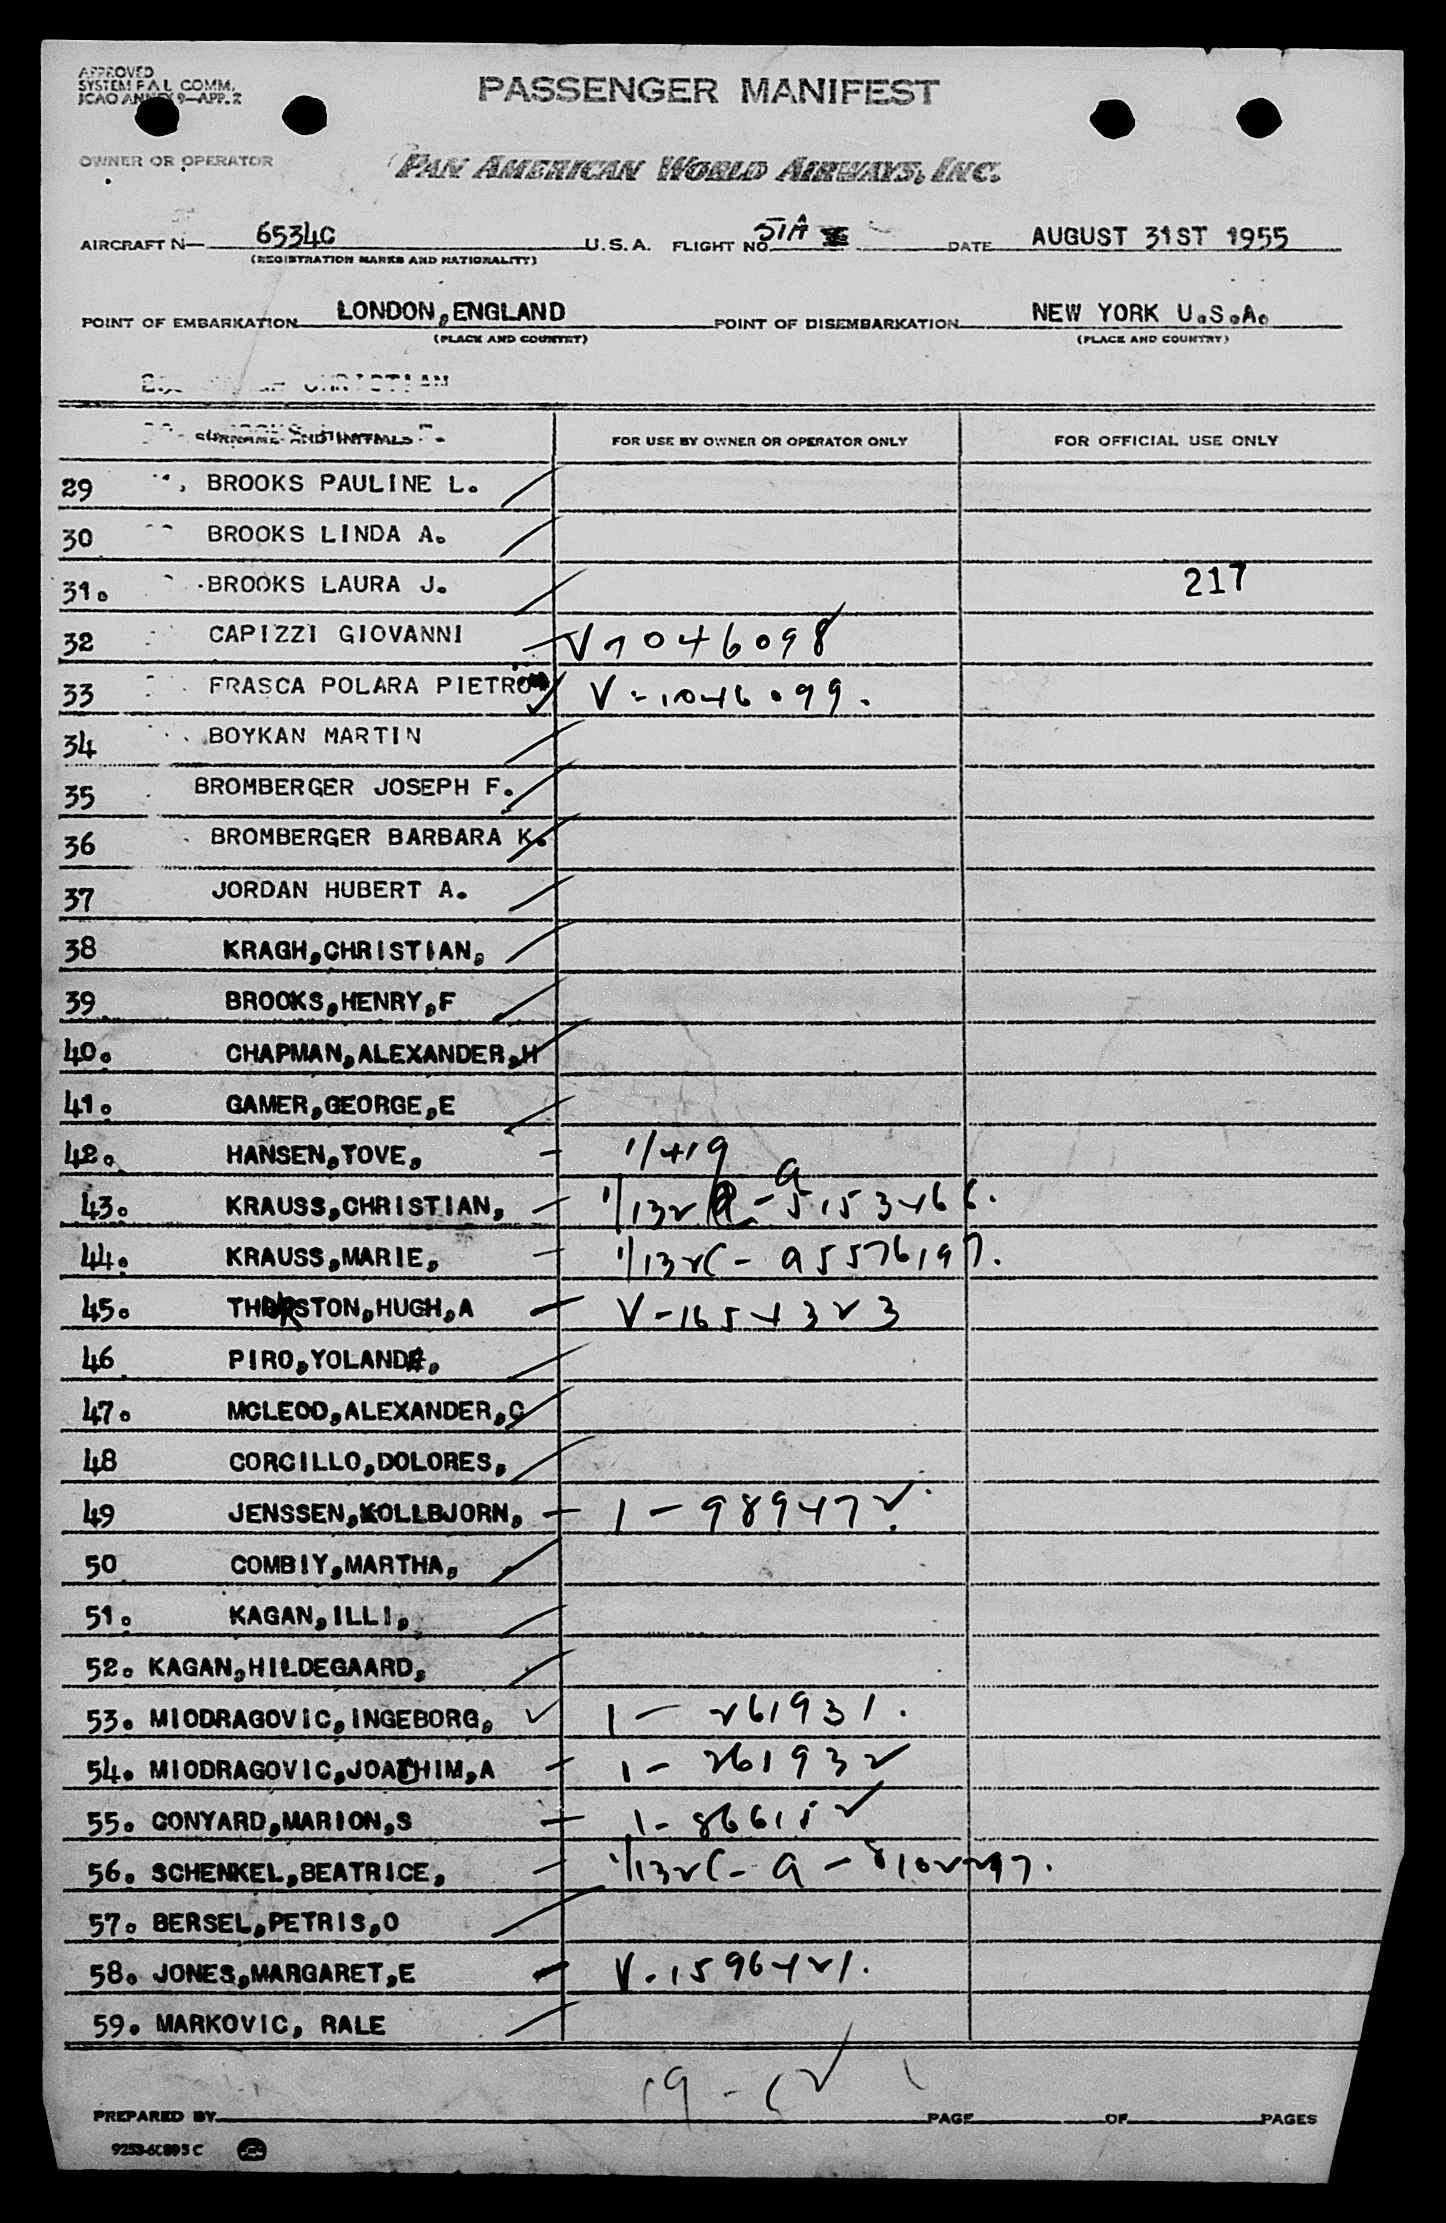 APPROVED
SYSTEM F.A.L. COMM.
ICAO ANNEX 9—APP. 2
PASSENGER MANIFEST
OWNER OR OPERATOR
PAN AMERICAN WORLD AIRWAYS, INC.
AIRCRAFT N— 6534C U.S.A. FLIGHT NO. DATE AUGUST 31ST 1955
(REGISTRATION MARKS AND NATIONALITY)
POINT OF EMBARKATION LONDON,ENGLAND POINT OF DISEMBARKATION NEW YORK U.S.A.
(PLACE AND COUNTRY) (PLACE AND COUNTRY)
CHRISTIAN
SURNAME AND INITIALS FOR USE BY OWNER OR OPERATOR ONLY FOR OFFICIAL USE ONLY
29 BROOKS PAULINE L.
30 BROOKS LINDA A.
31. BROOKS LAURA J. 217
32 CAPIZZI GIOVANNI V1046098
33 FRASCA POLARA PIETRO V-1046099.
34 BOYKAN MARTIN
35 BROMBERGER JOSEPH F.
36 BROMBERGER BARBARA K.
37 JORDAN HUBERT A.
38 KRAGH,CHRISTIAN,
39 BROOKS,HENRY,F
40. CHAPMAN,ALEXANDER,H
41. GAMER,GEORGE,E
42. HANSEN,TOVE, 1/419
43. KRAUSS,CHRISTIAN,
44. KRAUSS,MARIE, 1/132C- a5576197.
45. THURSTON,HUGH,A V-1654323
46 PIRO,YOLANDE,
47. MCLEOD,ALEXANDER,C
48 CORCILLO,DOLORES,
49 JENSSEN,KOLLBJORN, 1-989472.
50 COMBIY,MARTHA,
51. KAGAN,ILLI,
52. KAGAN,HILDEGAARD,
53. MIODRAGOVIC,INGEBORG, 1-261931.
54. MIODRAGOVIC,JOACHIM,A 1-261932
55. CONYARD,MARION,S 1-86615
56. SCHENKEL,BEATRICE, 1/132C-a-8102297.
57. BERSEL,PETRIS,O
58. JONES,MARGARET,E V-1596421.
59. MARKOVIC, RALE
PREPARED BY PAGE OF PAGES